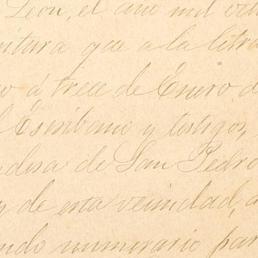 Leon, el año mil
critura que a la litra
o á trece de Enero d
l Escribano y testigos,
de San Pedro
y de esta vecindad, a
ndo numerario par